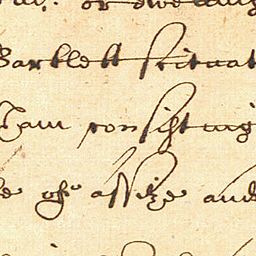 or dwelling
Bartlett scituat
consisting
of assize and